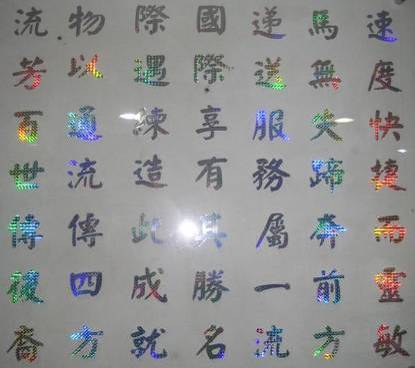 速度快捷而靈敏
馬無失蹄奔前方
递送服務屬一流
國際享有其勝名
際遇練造此成就
物以通流傳四方
流芳百世傳後裔